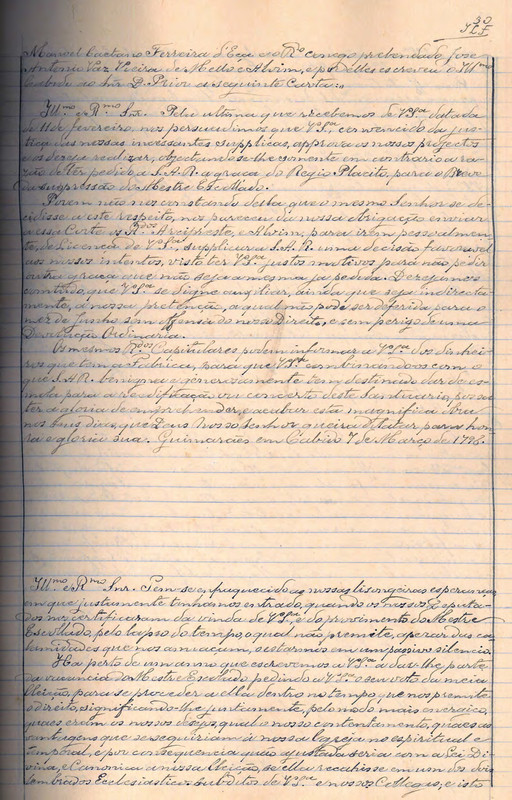 30
Manoel Caetano Ferreira d'Eça e o Rdo conego prebendado José
Antonio Vaz Vieira de Mello e Alvim, e por elles escreveu o Illmo
Cabido ao Snr. D. Prior a seguinte Carta:
Illmo e Rmo Snr. Pela ultima que recebemos de VSria, datada
de 11 de fevereiro, nos persuadimos que VSria, convencido da jus-
tiça das nossas incessantes supplicas, approva os nossos projectos
e os deseja realizar, objectando-se-lhe somente em contrario a ra-
zão de ter pedido, a S.A.R. a graça do Regio Placito, para o Breve
da supressão do Mestre Escollado.
Porem não nos constando desta, que o mesmo Senhor se de-
cidisse a este respeito, nos pareceu da nossa obrigação enviar
a essa Corte os Rdos Arcypreste, e Alvim, para irem pessoalmen-
te, de Licença de VSria, supplicar a S.A.R. uma decisão favoravel
aos nossos intentos, visto ter VSria justos motivos para não pedir
outra graça que não seja a mesma ja pedida. Desejamos
comtudo, que VSria se digne auxiliar, ainda que seja indirecta-
mente, a nossa pretenção, a qual não pode ser deferida para o
mez de Junho sem offensa do nosso Direito, e sem perigo de uma
Devolução Ordinaria.
Os mesmos Rdos Capitulares podem informar a VSria dos dinhei-
ros que tem a Fabrica, para que VSria combinando-os com o
que S.A.R. benigna e generosamente tem destinado dar de es-
mola para a reedificação ou concerto deste Santuario, possa
ter a gloria de emprehender, e acabar esta magnifica obra
nos seus dias, que Deus Nosso Senhor queira dilatar, para hon-
ra e gloria sua. Guimarães em Cabido 7 de Março de 1798.
Illmo e Rmo Snr. Tem-se enfraquecido as nossas lisongeiras esperanças
em que justamente tinhamos entrado, quando os nossos Deputa-
dos nos certificaram da vinda de VSria, e do provimento do Mestre
Escollado, pelo lapso do tempo, o qual não premitte, apezar das ca-
lumidades que nos ameaçam, o estarmos em um passivo silencio.
Ha perto de um anno que escrevemos a VSria a dar-lhe parte
da vacancia do Mestre Escollado pedindo a VSria o seu voto da meia
Eleição, para se proceder a ella dentro no tempo, que nos premitte
o direito, significando-lhe juntamente, pelo modo mais energico,
quaes eram os nossos desejos, qual o nosso contentamento, quaes as
vantagens que se seguiriam á nossa Egreja no espiritual e
temporal, e por consequencia quão ajustada seria com a Lei Di-
vina, e Canonica a nossa Eleição, se ella recahisse em um dos dois
lembrados Ecclesiasticos Subditos de VSria e nossos Collegas; e isto